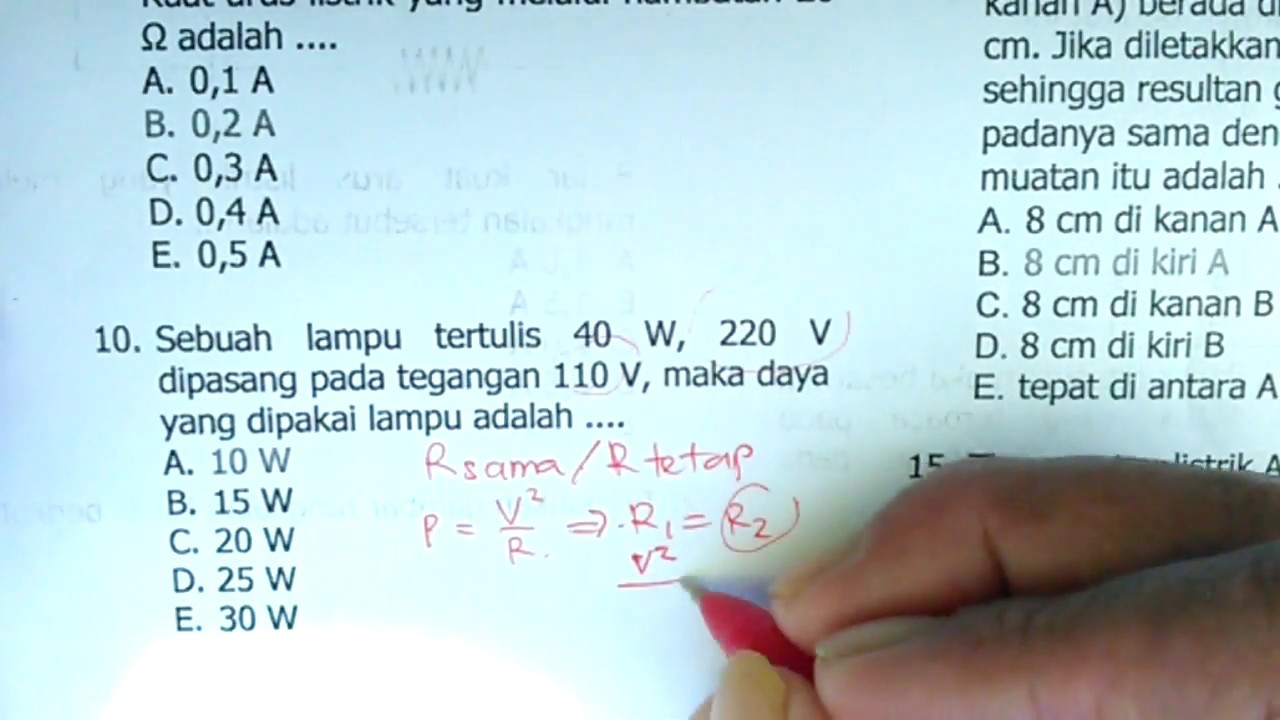 Kuat arus listrik yang melalui hambatan 20
Ω adalah ....
A. 0,1 A
B. 0,2 A
C. 0,3 A
D. 0,4 A
E. 0,5 A
10. Sebuah lampu tertulis 40 W, 220 V
dipasang pada tegangan 110 V, maka daya
yang dipakai lampu adalah ....
A. 10 W
B. 15 W
C. 20 W
D. 25 W
E. 30 W
R sama / R tetap
P = V² / R ⇒ R₁ = R₂
V²
kanan A) berada
cm. Jika diletakkan
sehingga resultan
padanya sama den
muatan itu adalah
A. 8 cm di kanan A
B. 8 cm di kiri A
C. 8 cm di kanan B
D. 8 cm di kiri B
E. tepat di antara A
15.
listrik A